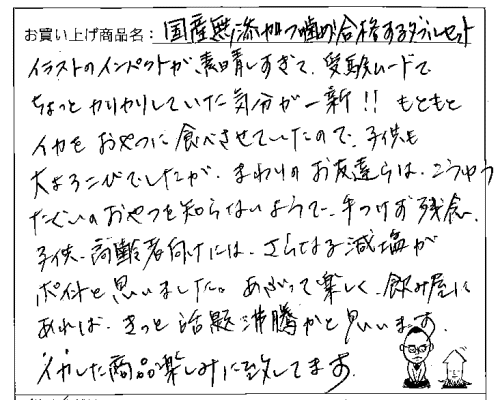 お買い上げ商品名: 国産無添加つ噛め合格するダブルセット
イラストのインパクトが素晴しすぎて、受験ムードで
ちょっとカリカリしていた気分が一新!! もともと
イカを おやつに 食べさせていたので、子供も
大よろこびでしたが、まわりのお友達らは、こうゆう
たぐいのおやつを知らないようで、手つけず 残念、
子供、高齢者向けには、さらなる減塩が
ポイントと思いました。あぶって楽しく、飲み屋に
あれば、きっと 話題沸騰かと思います。
イカした商品楽しみに致してます。